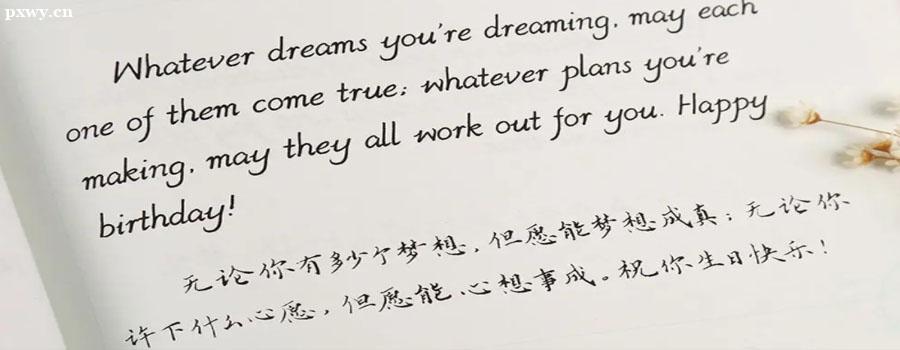 pxwy.cn
Whatever dreams you're dreaming, may each
one of them come true; whatever plans you're
making, may they all work out for you. Happy
birthday!
无论你有多少个梦想，但愿能梦想成真；无论你
许下什么心愿，但愿能心想事成。祝你生日快乐！